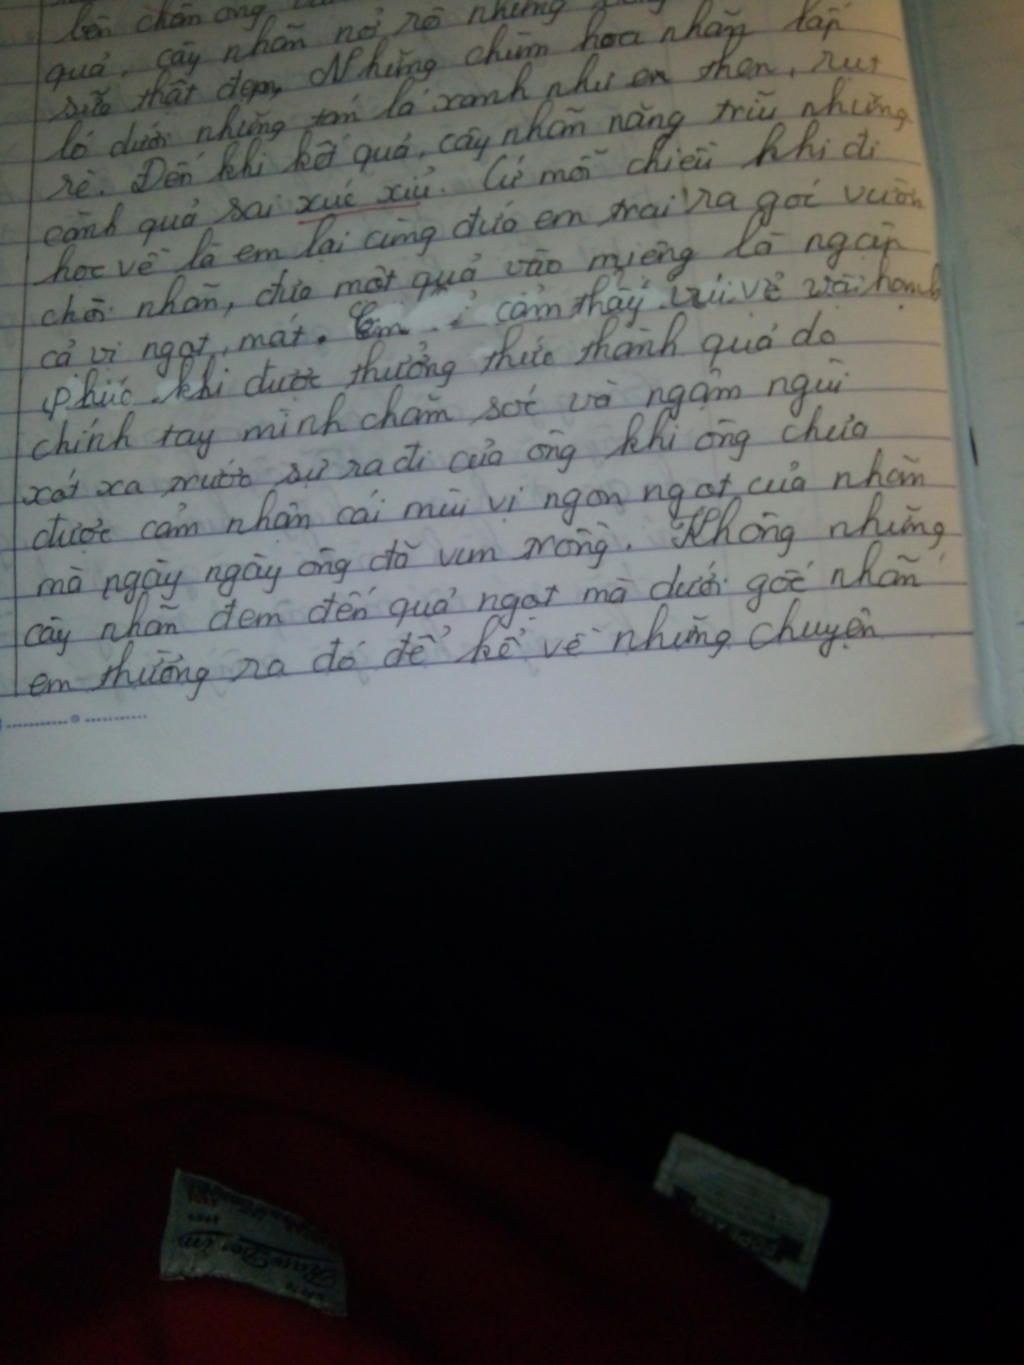 bên chăm ông
quả, cây nhãn nở rộ những
sữa thật đẹp. Những chùm hoa nhãn lấp
ló dưới những tán lá xanh như en then, rụt
rè. Đến khi kết quả, cây nhãn nặng trĩu những
cành quả sai xúc xỉu. Cứ mỗi chiều khi đi
học về là em lại cùng đứa em trai ra góc vườn
chơi nhãn, đưa một quả vào miệng là ngập
cả vị ngọt, mát. Em cảm thấy vui vẻ và hạnh
phúc khi được thưởng thức thành quả do
chính tay mình chăm sóc và ngậm ngùi
xót xa trước sự ra đi của ông khi ông chưa
được cảm nhận cái mùi vị ngon ngọt của nhãn
mà ngày ngày ông đã vun trồng. Không những
cây nhãn đem đến quả ngọt mà dưới gốc nhãn
em thường ra đó để kể về những chuyện